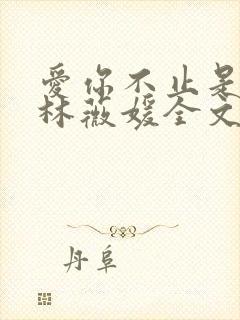 爱你不止是
林薇媛全文
丹阜